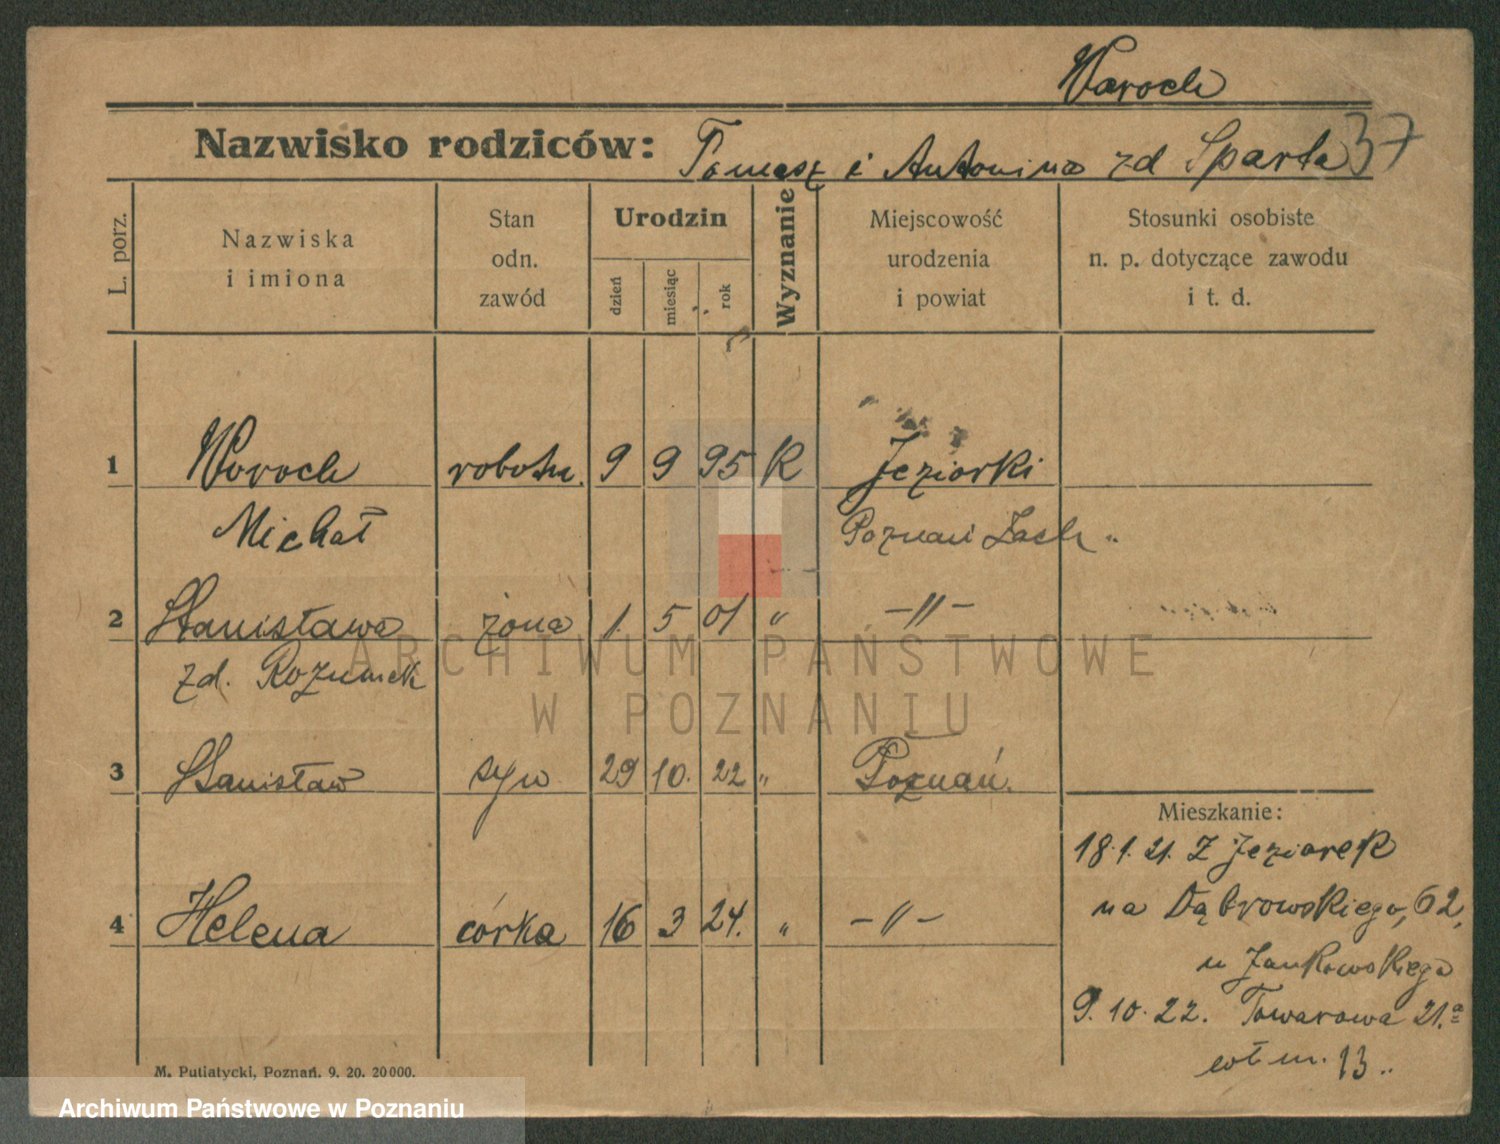 Woroch
Nazwisko rodziców: Tomasz i Antonina zd Sparta 37
L. porz.
Nazwiska
i imiona
Stan
odn.
zawód
Urodzin
dzień
miesiąc
rok
Wyznanie
Miejscowość
urodzenia
i powiat
Stosunki osobiste
n. p. dotyczące zawodu
i t. d.
1 Woroch robotn. 9 9 95 K Jeziorki
Michał Poznań Zach.
2 Stanisława żona 1. 5 01 " -"-
zd.
3 Stanisław syn 29 10. 22 " Poznań.
Mieszkanie:
18.1.21. Z Jeziorek
4 Helena córka 16 3 24. " -"-
na Dąbrowskiego, 62,
u Jankowskiego
9.10.22. Towarowa 21.a
m. 13
M. Putiatycki, Poznań. 9. 20. 20 000.
ARCHIWUM PAŃSTWOWE
W POZNANIU
Archiwum Państwowe w Poznaniu